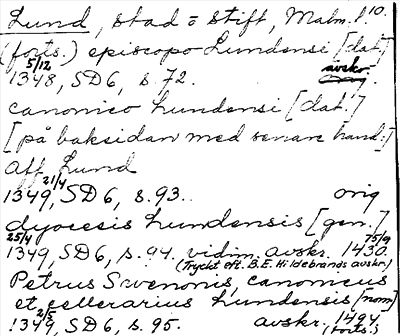 Lund, stad o stift, Malm. l. 10.
(forts.) episcopo Lundensi [dat.]
5/12 avskr.
1348, SD 6, s. 72.
canonico Lundensi [dat.]
[på baksidan med senare hand:]
aff Lund
21/4
1349, SD 6, s. 93. orig
dyocesis Lundensis [gen.]
25/4
1349, SD 6, s. 94. vidim. avskr. 1430.
(Tryckt eft. B.E. Hildebrands avskr.)
Petrus canonicus
et cellerarius Lundensis [nom]
2/5
1349, SD 6, s. 95. avskr. 1494
(forts.)